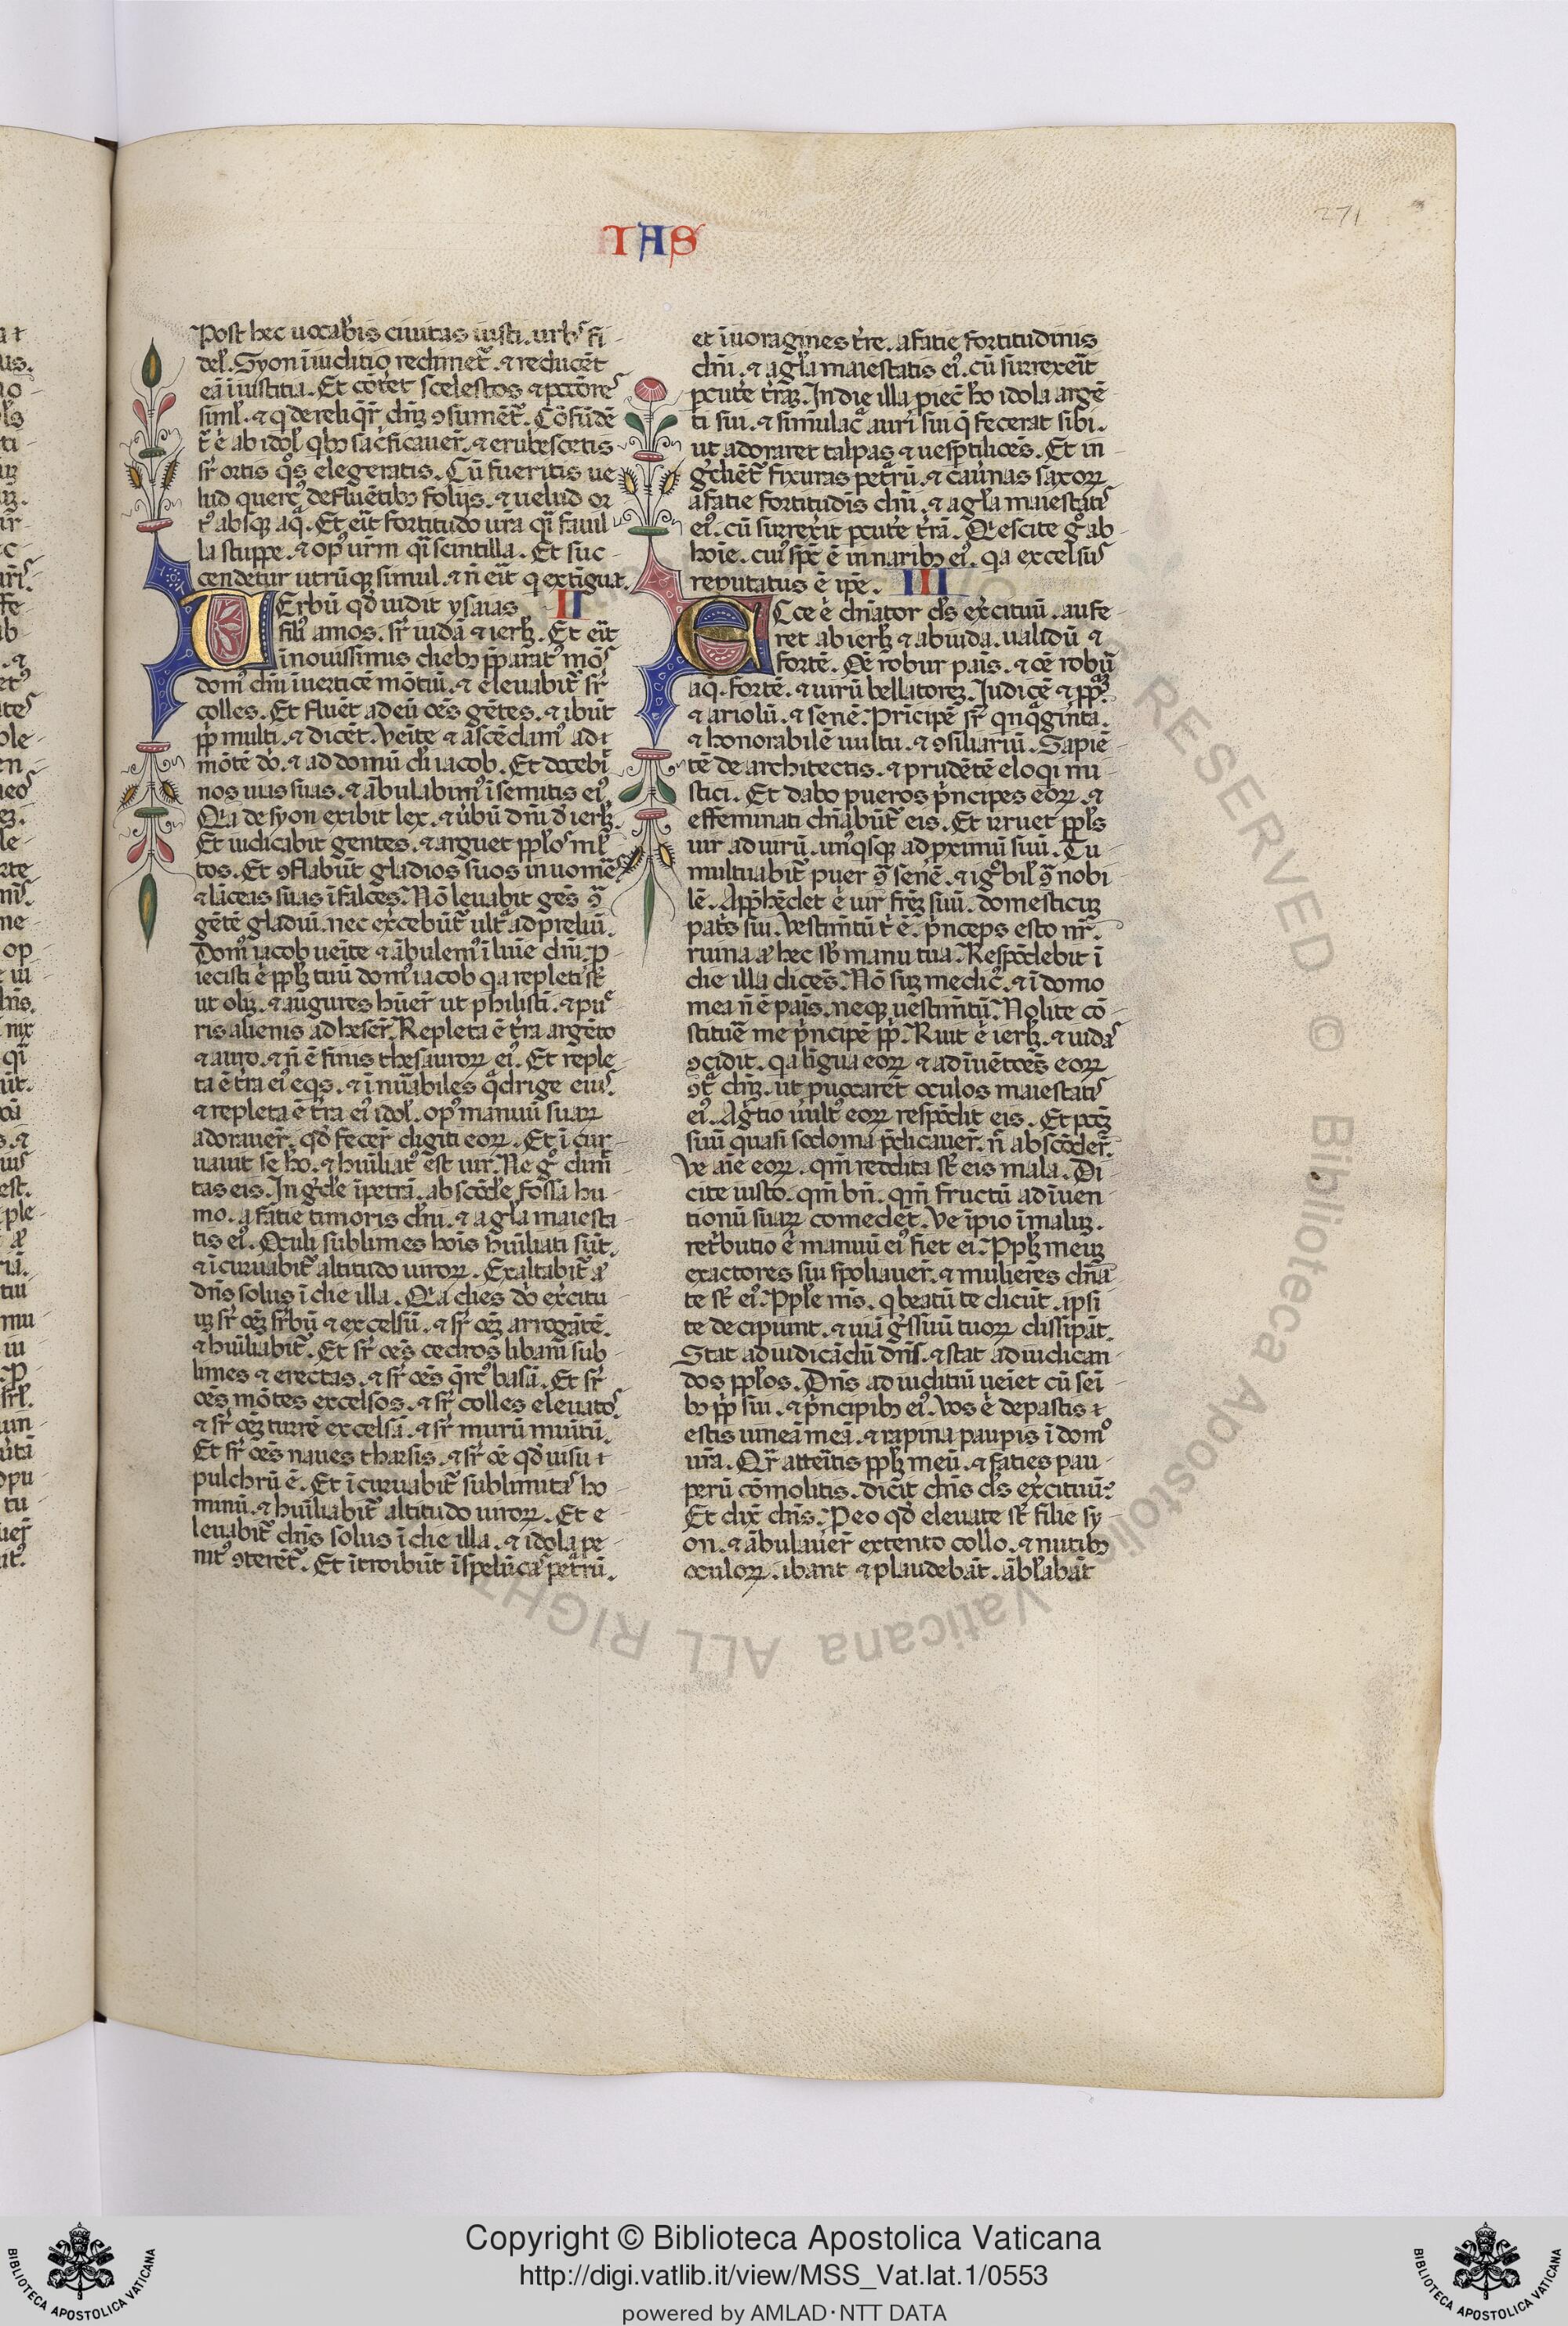 271
IAS
Post hec uocab̄is ciuitas iusti. urbˢ fi-
del̛. Syon ī iuditio redimet᷑. ⁊ reducēt
eā ī iustitia. Et cōt̛et scelestos ⁊ pccōre᷑ˢ
siml̛. ⁊ q̛ dereliq̄r̄ dn̄ꝫ ꝯsumēt᷑. Cōfūdē
t᷑ .n. ab idol̛ qbꝫ sac̛ficauer̄. ⁊ erubescetis
sr̄ ortis q̛s elegeratis. Cū fueritis ue
lud querc̛ꝰ defluētibꝫ folijs. ⁊ uelud or
t̛ absqꝫ aq̄. Et eīt fortitudo ur̄a qī fauil
la stuppe. ⁊ opꝰ ur̄m qī scintilla. Et suc-
cendetur utrūqꝫ simul. ⁊ n̄ eīt q extīgua.
UErbū qd̛ uidit ysaias II
fili̛ amos. sr̄ iudā ⁊ ierl̄ꝫ. Et eīt
ī nouissimis diebꝫ p̄parat̛ꝰ mōˢ
domꝰ dn̄i ī uerticē mōtiū. ⁊ eleuabit᷑ sr̄
colles. Et fluēt ad eū oēs gētes. ⁊ ibūt
pp̄ multi. ⁊ dicēt. Veīte ⁊ ascēdamꝰ ad
mōtē dn̄i. ⁊ ad domū dī iacob. Et docebi᷑t
nos uias suas. ⁊ ābulabimꝰ ī semitis eiꝰ.
Qa de syon exibit lex. ⁊ ưbū dn̄i d̛ ierl̄ꝫ.
Et iudicabit gentes. ⁊ arguet pp̄loˢ ml̛
tos. Et ꝯflabūt gladios suos in uomē᷑ˢ
⁊ lāceas suas ī falces. Nō leuabit gēs ꝯ᷑
gētē gladiū. nec exc̛ebūt᷑ ult᷑ ad preliū.
Domꝰ iacob ueīte ⁊ ābulemꝰ ī luīe dn̄i. ꝑ
iecisti .n. pp̄lꝫ tuū domꝰ iacob qa repleti st̄
ut olī. ⁊ augures hūer̄ ut philisti. ⁊ pue
ris alienis adheser̄. Repleta ē t̛ra argēto
⁊ auro. ⁊ n̄ ē finis thesauroꝝ eiꝰ. Et reple
ta ē t̛ra eiꝰ eqs. ⁊ īnūabiles q̄drige eiuˢ.
⁊ repleta ē t̛ra eiꝰ idol̛. opꝰ manuū suaꝝ
adorauer̄. qd̛ fecer̄ digiti eoꝝ. Et ī cur-
uauit se hō. ⁊ hūiliatꝰ est uir. Ne g̛ dim̄
tas eis. Ing̛de̛ ī petrā. abscōde̛ fossa hu-
mo. a fatie timoris dn̄i. ⁊ a gl̄a maiesta-
tis eiꝰ. Oculi sublimes hoīs hūiliati sūt.
⁊ ī curuabit᷑ altitudo uiroꝝ. Exaltabit᷑ aͧ
dn̄s solus ī die illa. Qa dies dn̄i exc̛itu
uꝫ sr̄ oēꝫ sr̄bū ⁊ excelsū. ⁊ sr̄ oēꝫ arrogātē.
⁊ hūiliabit᷑. Et sr̄ oēs cedros libani sub-
limes ⁊ erectas. ⁊ sr̄ oēs q̄rcꝰ basā. Et sr̄
oēs mōtes excelsos. ⁊ sr̄ colles eleuatoˢ.
⁊ sr̄ oēꝫ turrē excelsā. ⁊ sr̄ murū muītū.
Et sr̄ oēs naues tharsis. ⁊ sr̄ oē qd̛ uisu
pulchrū ē. Et ī curuabit᷑ sublimitaˢ ho-
minū. ⁊ hūiliabit᷑ altitudo uiroꝝ. Et e-
leuabit᷑ dn̄s solus ī die illa. ⁊ idola pe-
nitꝰ ꝯterēt᷑. Et ītroibūt ī spelūcaˢ petrarū.
et ī uoragines t̛re. a fatie fortitudinis
dn̄i. ⁊ a gl̄a maiestatis eiꝰ. cū surrexeīt
ꝑcute̛ t̛rāꝫ. In die illa ꝓiec̛ hō idola argē-
ti sui. ⁊ simulac᷑ auri sui q̄ fecerat sibi.
ut adoraret talpas ⁊ uesp̛tilioēs. Et in-
g̛diēt᷑ fixuras petrarū. ⁊ caưnas saxoꝝ
a fatie fortitudīs dn̄i. ⁊ a gl̄a maiestatiˢ
eiꝰ. cū surrex̛it ꝑcute̛ t̛rā. Qescite g̛ ab-
hoīe. cuiꝰ sp̄c ē in naribꝫ eiꝰ. qa excelsuˢ
reputatus ē ip̄e. III
ECce .n. dn̄ator dn̄s exc̛ituū. aufe-
ret ab ierl̄ꝫ ⁊ ab iuda. ualidū ⁊
fortē. Oē robur paīs. ⁊ oē robur
aq̄. fortē. ⁊ uirū bellatorēꝫ. Iudicē ⁊ pp̄h̄ꝫ
⁊ ariolū. ⁊ senē. Prīcipē sr̄ qnq̄ginta.
⁊ honorabilē uultu. ⁊ ꝯsiliariū. Sapiē-
tē de architectis. ⁊ prudētē eloqi mi-
stici. Et dabo pueros p̛ncipes eoꝝ. ⁊
effeminati dn̄abūt᷑ eis. Et irruet pp̄ls
uir ad uirū. unꝰqsqꝫ ad ꝓximū suū. Tu-
multuabit᷑ puer ꝯ᷑ senē. ⁊ ig̛bil̛ ꝯ᷑ nobi-
lē. App̄hēdet .n. uir fr̄ēꝫ suū. domesticuꝫ
pat̛s sui. Vestim̄tū t̛ ē. p̛nceps esto nr̄.
ruina aͧ hec sb̛ manu tua. Respōdebit ī
die illa dicēs. Nō suꝫ medic̛ꝰ. ⁊ ī domo
mea n̄ ē paīs. neqꝫ uestim̄tū. Nolite cō-
stitue̛ me p̛ncipē pp̄li. Ruit .n. ierl̄ꝫ. ⁊ iudaˢ
ꝯcidit. qa līgua eoꝝ ⁊ ad īuētōēs eoꝝ
ꝯt᷑ dn̄ꝫ. ut ꝓuocarēt oculos maiestatiˢ
eiꝰ. Ag̛tio uultꝰ eoꝝ respōdit eis. Et pccꝫ
suū quasi sodoma p̄dicauer̄. n̄ abscōder̄.
Ve aīe eoꝝ. qm̄ reddita st̄ eis mala. Di-
cite iusto. qm̄ bn̄. qm̄ fructū ad īuen-
tionū suaꝝ comedet. Ve īpio ī maluꝫ.
ret̛butio .n. manuū eiꝰ fiet ei. Pp̄lꝫ meuꝫ
exactores sui spoliauer̄. ⁊ mulieres dn̄a-
te st̄ eiꝰ. Pp̄le m̄s. q beatū te dicūt. ipsi
te decipiunt. ⁊ uiā g̛ssuū tuoꝝ dissipāt.
Stat ad iudicādū dn̄s. ⁊ stat ad iudican-
dos pp̄los. Dn̄s ad iuditiū ueiet cū seni-
bꝫ pp̄li sui. ⁊ p̛ncipibꝫ eiꝰ. Vos .n. depasti
estis uineā meā. ⁊ rapina paupis ī domo
ur̄a. Qr̄ atteītis pp̄lꝫ meū. ⁊ faties pau-
perū cōmolitis. dicit dn̄s ds̄ exc̛ituū?
Et dix̄ dn̄s. Peo qd̛ eleuate st̄ filie sy-
on. ⁊ ābulauer̄ extento collo. ⁊ nutibꝫ
oculoꝝ. ibant ⁊ plaudebāt. ābl̄abāt
Biblioteca Apostolica Vaticana ALL RIGHTS RESERVED ©
Copyright © Biblioteca Apostolica Vaticana
http://digi.vatlib.it/view/MSS_Vat.lat.1/0553
powered by AMLAD·NTT DATA
BIBLIOTECA APOSTOLICA VATICANA
BIBLIOTECA APOSTOLICA VATICANA